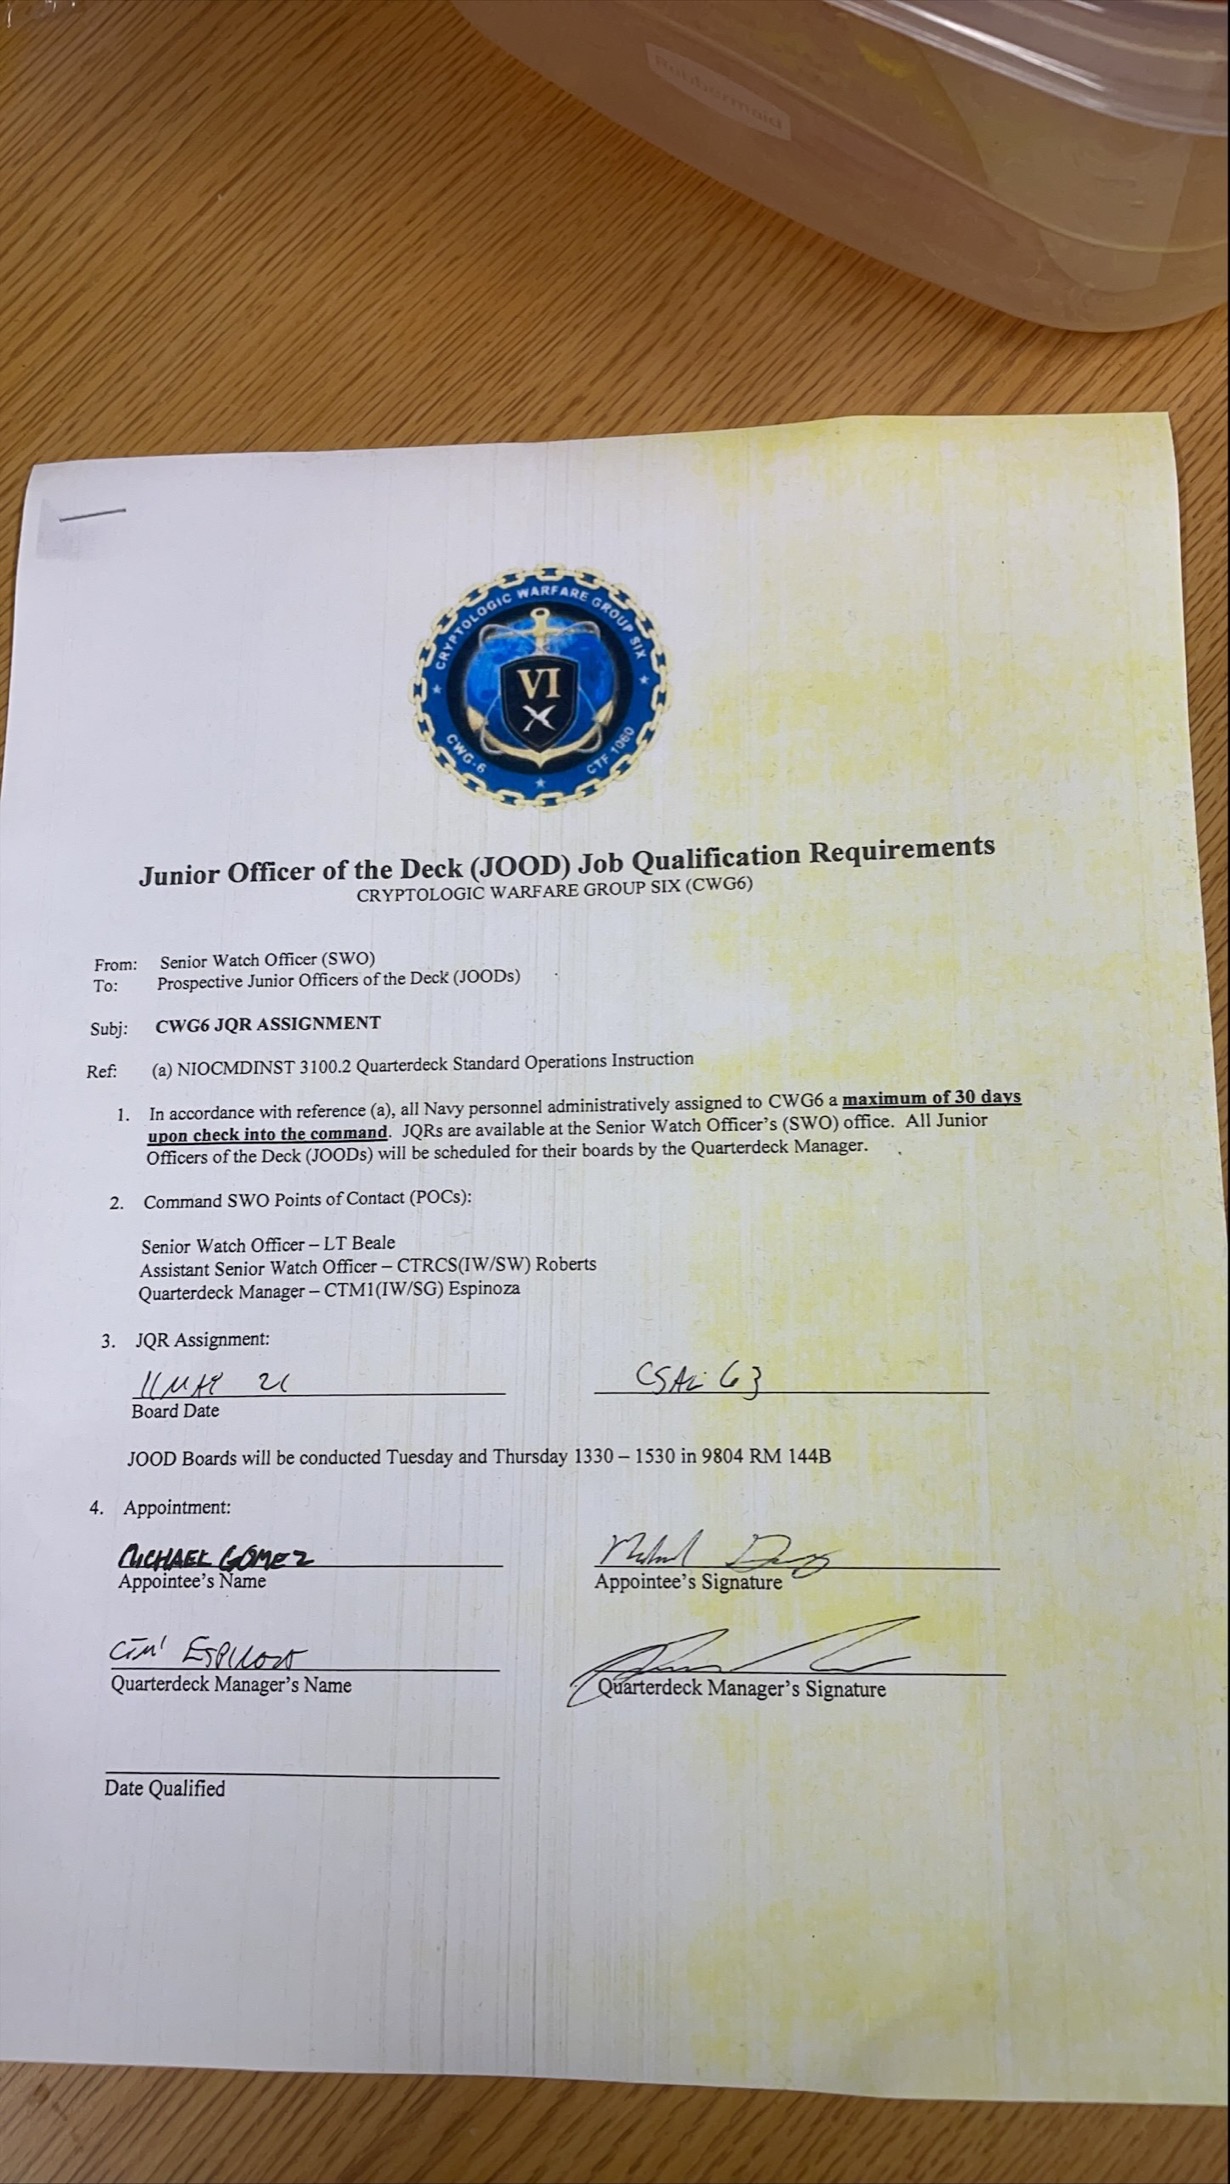 Rubbermaid
CRYPTOLOGIC WARFARE GROUP SIX
VI
CWG-6
CTF 1060
Junior Officer of the Deck (JOOD) Job Qualification Requirements
CRYPTOLOGIC WARFARE GROUP SIX (CWG6)
From: Senior Watch Officer (SWO)
To: Prospective Junior Officers of the Deck (JOODs)
Subj: CWG6 JQR ASSIGNMENT
Ref: (a) NIOCMDINST 3100.2 Quarterdeck Standard Operations Instruction
1. In accordance with reference (a), all Navy personnel administratively assigned to CWG6 a maximum of 30 days
upon check into the command. JQRs are available at the Senior Watch Officer's (SWO) office. All Junior
Officers of the Deck (JOODs) will be scheduled for their boards by the Quarterdeck Manager.
2. Command SWO Points of Contact (POCs):
Senior Watch Officer – LT Beale
Assistant Senior Watch Officer – CTRCS(IW/SW) Roberts
Quarterdeck Manager – CTM1(IW/SG) Espinoza
3. JQR Assignment:
11 MAY
Board Date
JOOD Boards will be conducted Tuesday and Thursday 1330 – 1530 in 9804 RM 144B
4. Appointment:
MICHAEL GOMEZ
Appointee's Name Appointee's Signature
Quarterdeck Manager's Name Quarterdeck Manager's Signature
Date Qualified